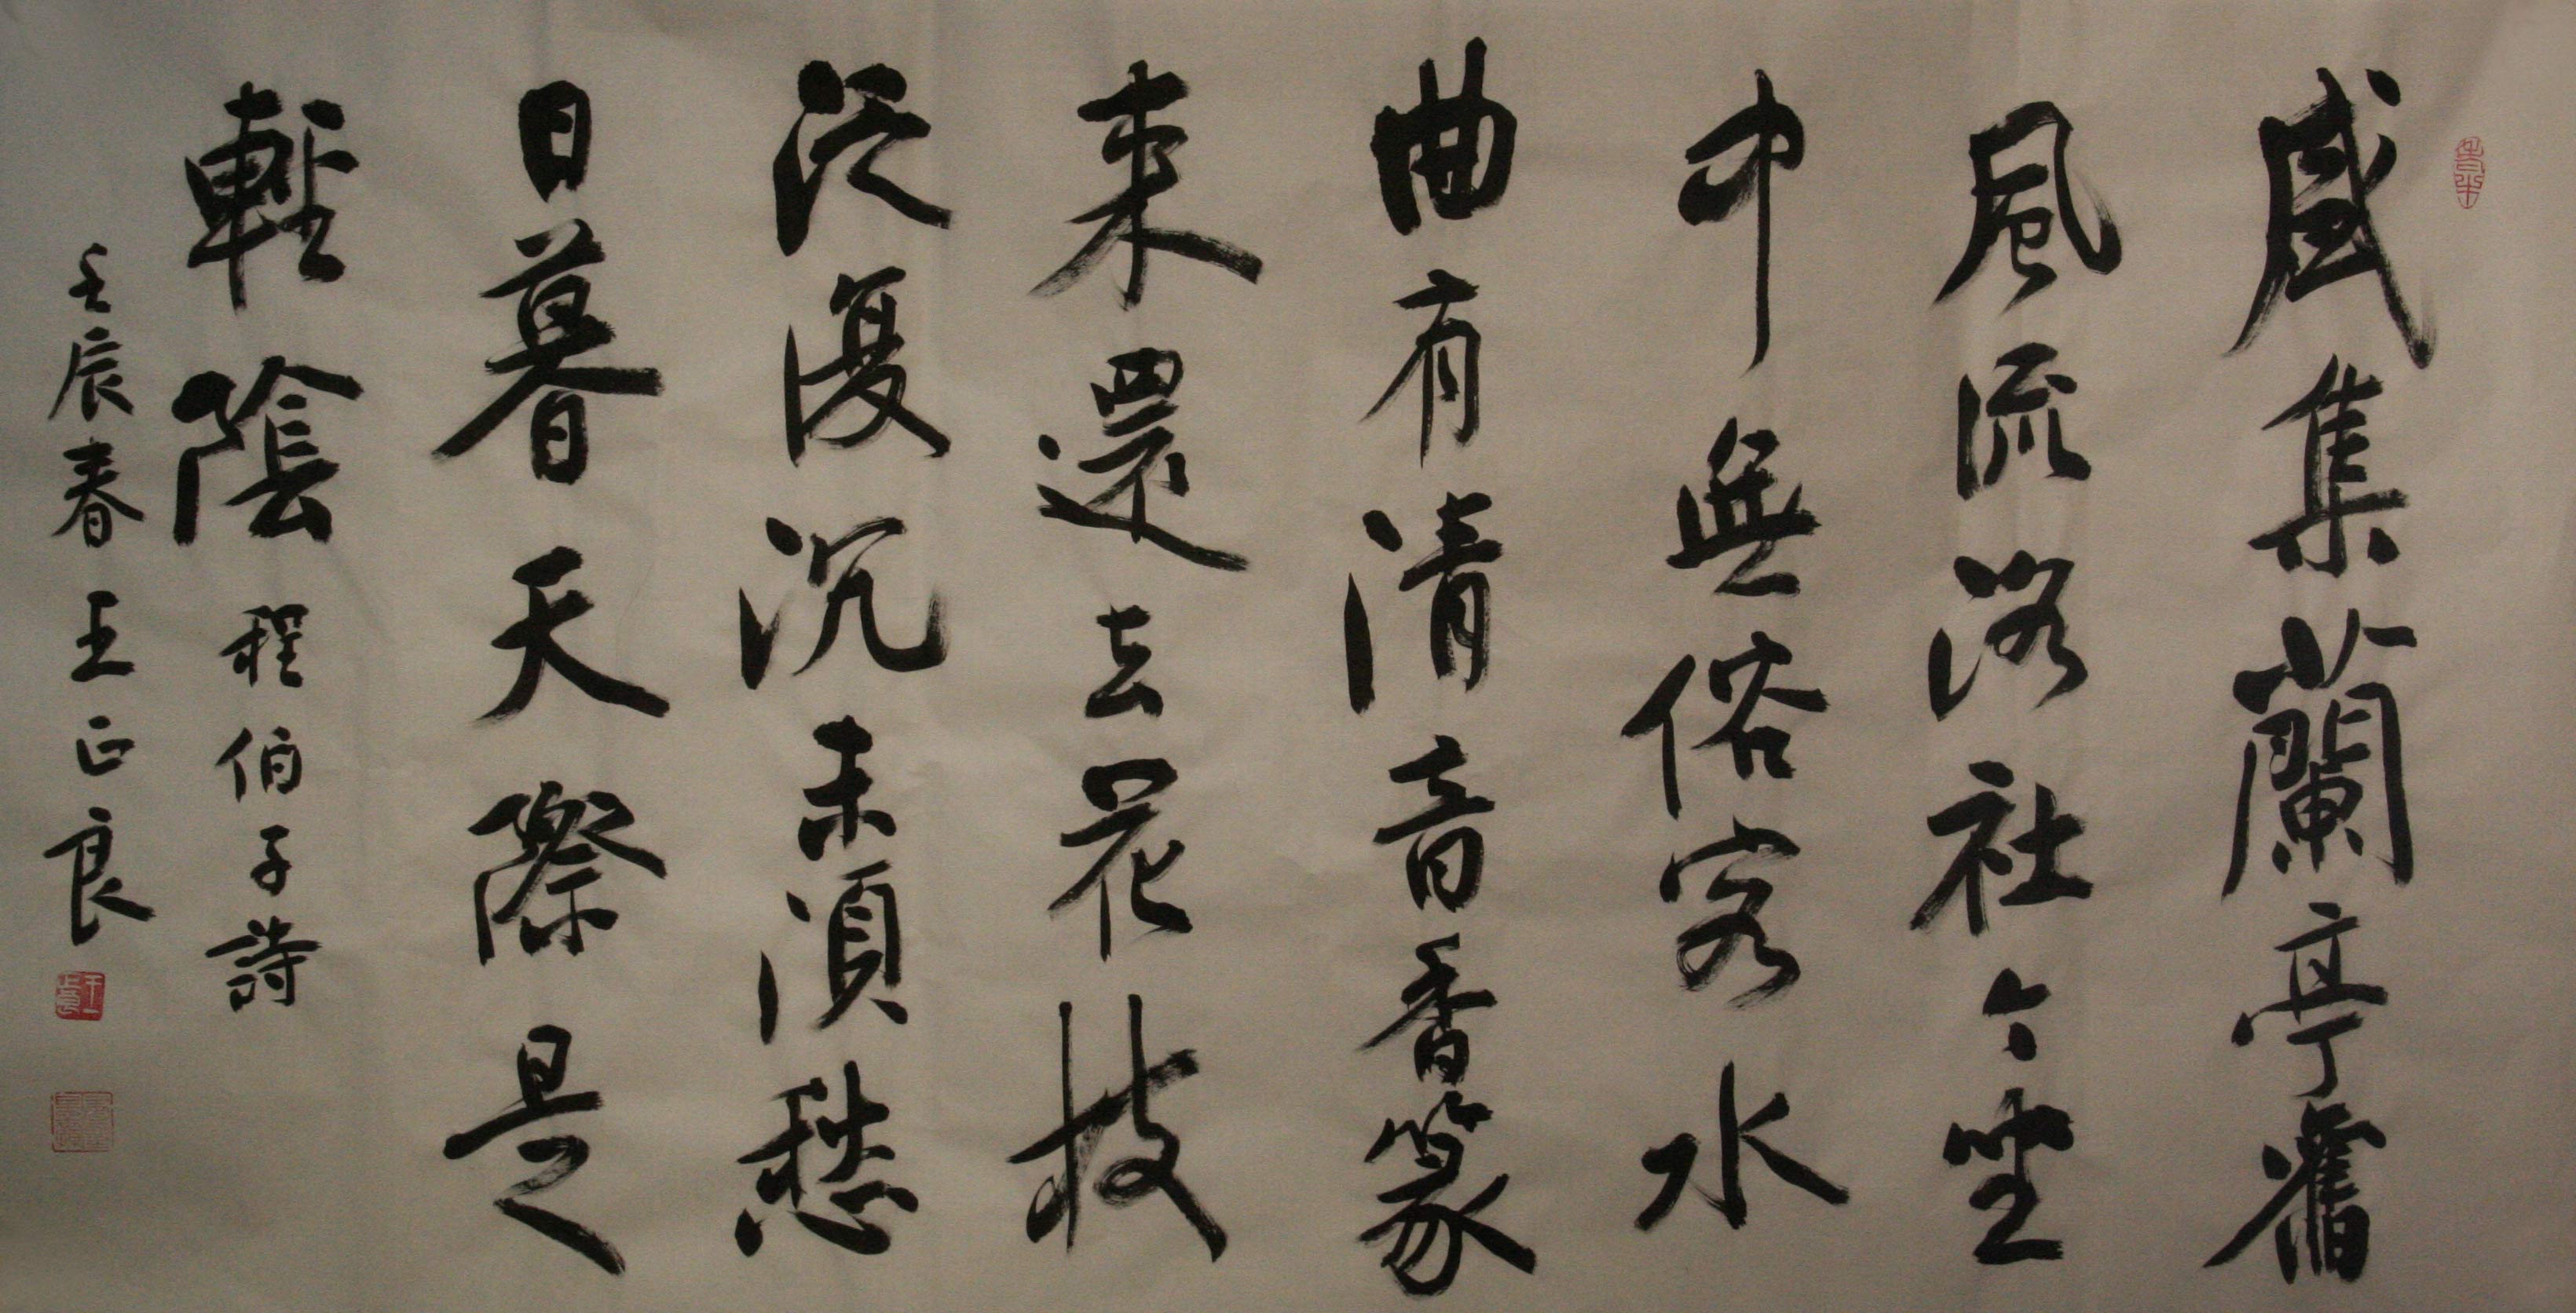 盛集蘭亭舊
風流洛社今坐
中無俗客水
曲有清音香篆
來還去花枝
泛復沉未須愁
日暮天際是
輕陰 程伯子詩
壬辰春 王正良